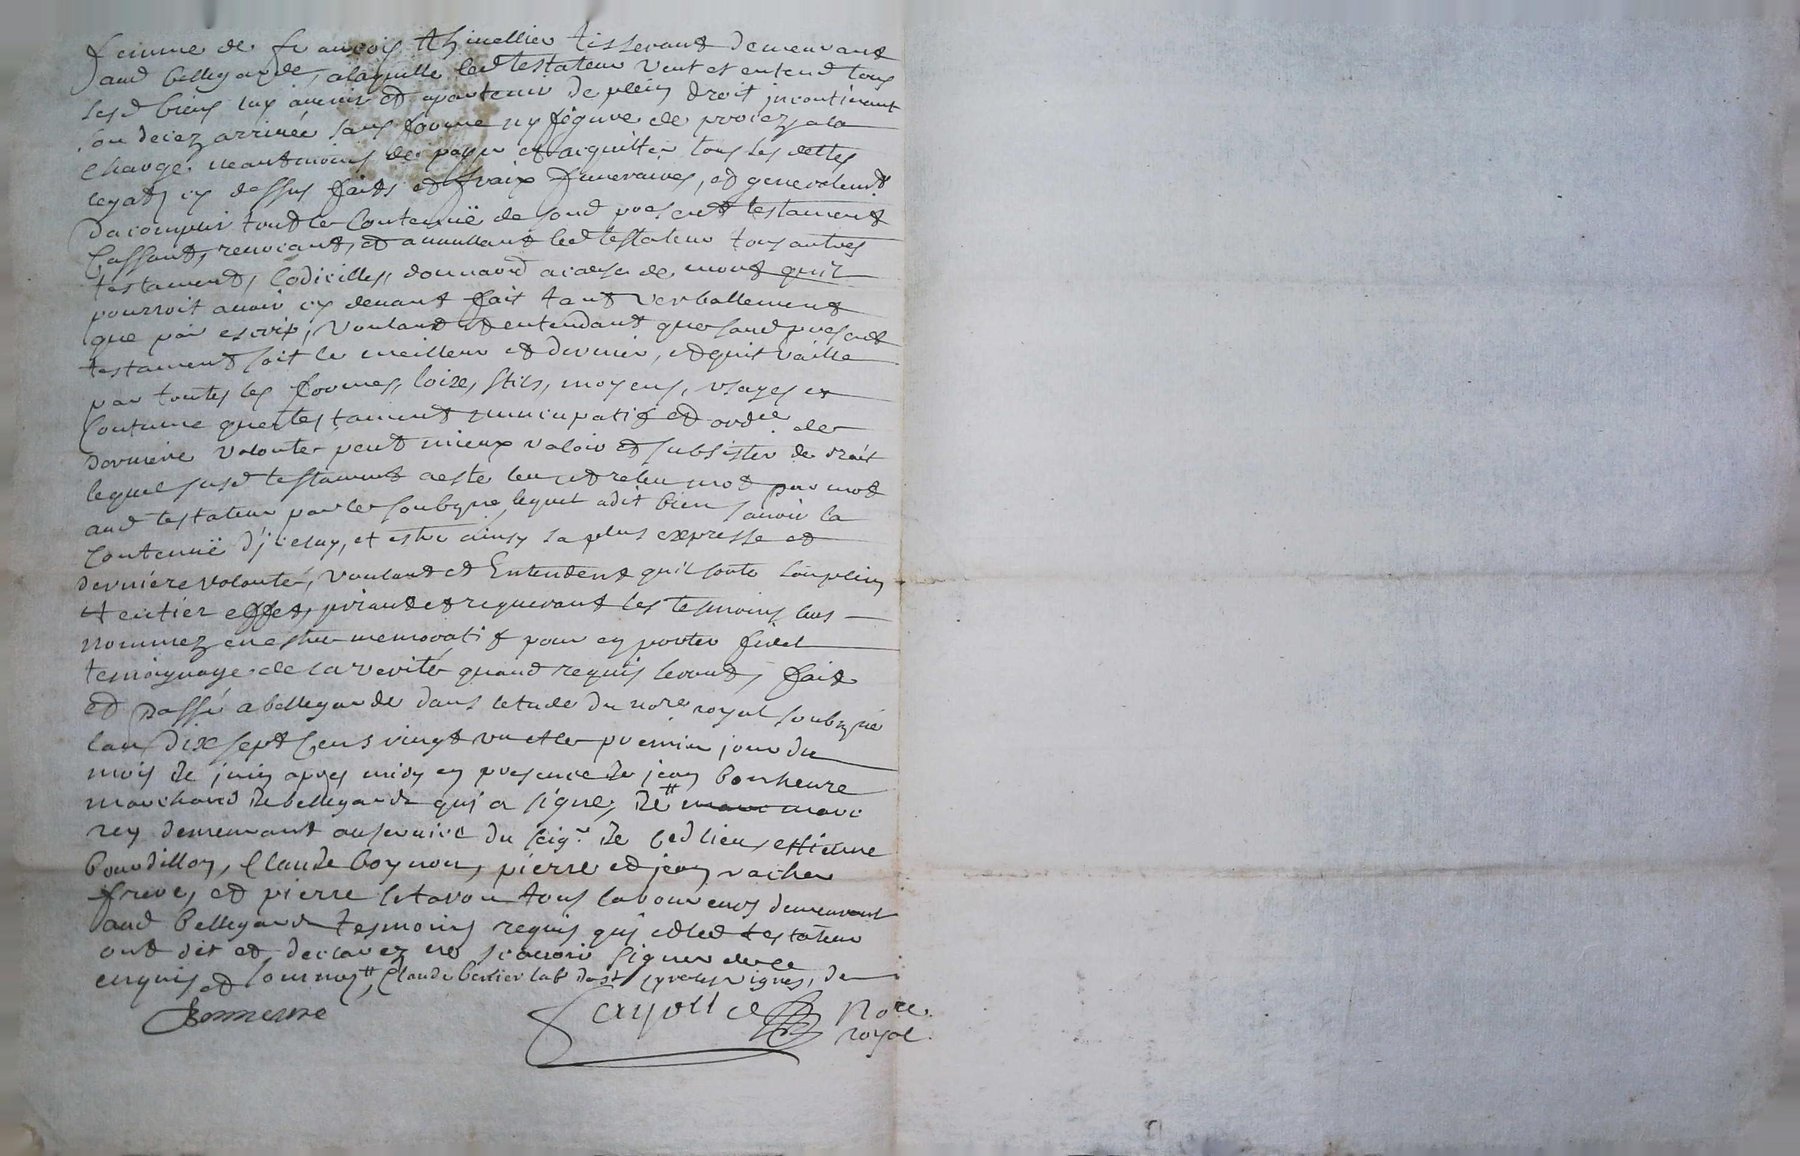 femme de francois thinellier tisserant demeurant
aud bellegarde, a laquelle led testateur veut et entend tous
sesd biens luy avenir et apartenir de plein droit incontinant
son decez arrivée sans forme ny figure de procez, a la
charge neantmoins de payer et acquitter tous les dettes
legats cy dessus faits et fraix funeraires, et generalemt
dacomplir tout le contenuë de sond present testament
Cassant, revocant, et annullant led testateur tous autres
testaments, Codicilles, donnaōns a cause de mort quil
pourroit avoir cy devant fait tant verballement
que par escrip, voulant et entendant que sond present
testament soit le meilleur et dernier, et quil vaille
par toutes les formes, loixs, stils, moyens, usages et
Coutume que testament nuncupatif et ordce de
derniere volonte peut mieux valoir et subsister de droit
lequel susd testament a este leu et releu mot par mot
aud testateur par le soubzne, lequel a dit bien savoir la
Contenuë d'jceluy, et estre ainsy sa plus expresse et
derniere volonté, voulant et Entendent quil sorte son plein
et entier effet, priant et requerant les tesmoins bas
nommez en estre memoratif pour en porter fidel
temoignage de la verité quand requis seront, fait
et passé a bellegarde dans letude du nore royal soubzné
lan dix sept cens vingt un et le premier jour du
mois de juin apres midy en presence de jean bonheure
marchand de bellegarde qui a signé, De marc
rey demeurant au service du seigr de ced lieu, ettienne
bourdillon, Claude Coynon, pierre et jean vacher
frere, et pierre letavon tous laboureurs demeurant
aud bellegarde tesmoins requis qui et led testateur
ont dit et declarez ne scavoir signer de ce
enquis et sommés, Claude berlier lab de st vignes, de
Bonneure
Cayollie Nore
royal